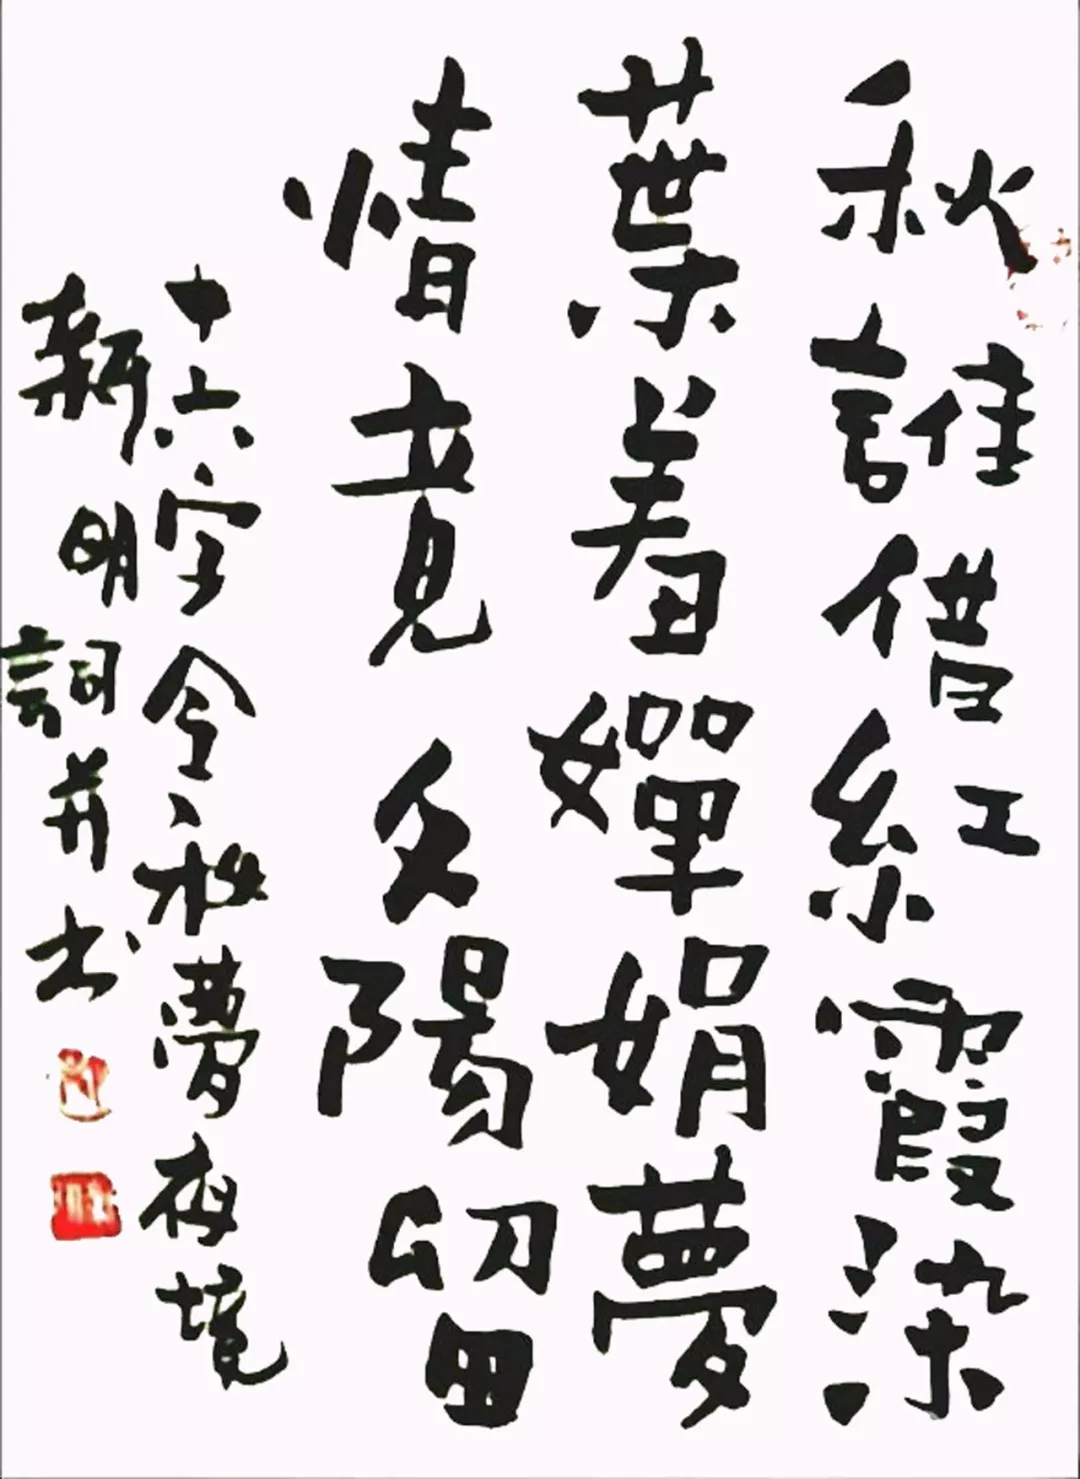 秋誰借紅霞染
葉羞嬋娟夢
情竟夕陽留
十六字令、秋夢夜境
新明詞并书